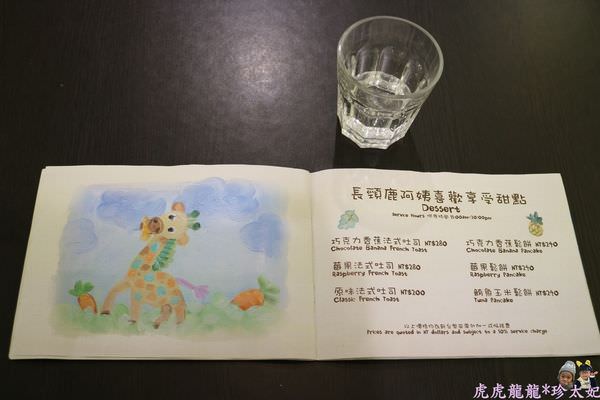 長頸鹿阿姨喜歡享受甜點
Dessert
Service hours 供應時間 11:00am-10:00pm
巧克力香蕉法式吐司 NT$280
Chocolate Banana French Toast
莓果法式吐司 NT$280
Raspberry French Toast
原味法式吐司 NT$200
Classic French Toast
巧克力香蕉鬆餅 NT$290
Chocolate Banana Pancake
莓果鬆餅 NT$290
Raspberry Pancake
鮪魚玉米鬆餅 NT$290
Tuna Pancake
Prices are quoted in NT dollars and subject to a 10% service charge
虎虎龍龍*珍太妃